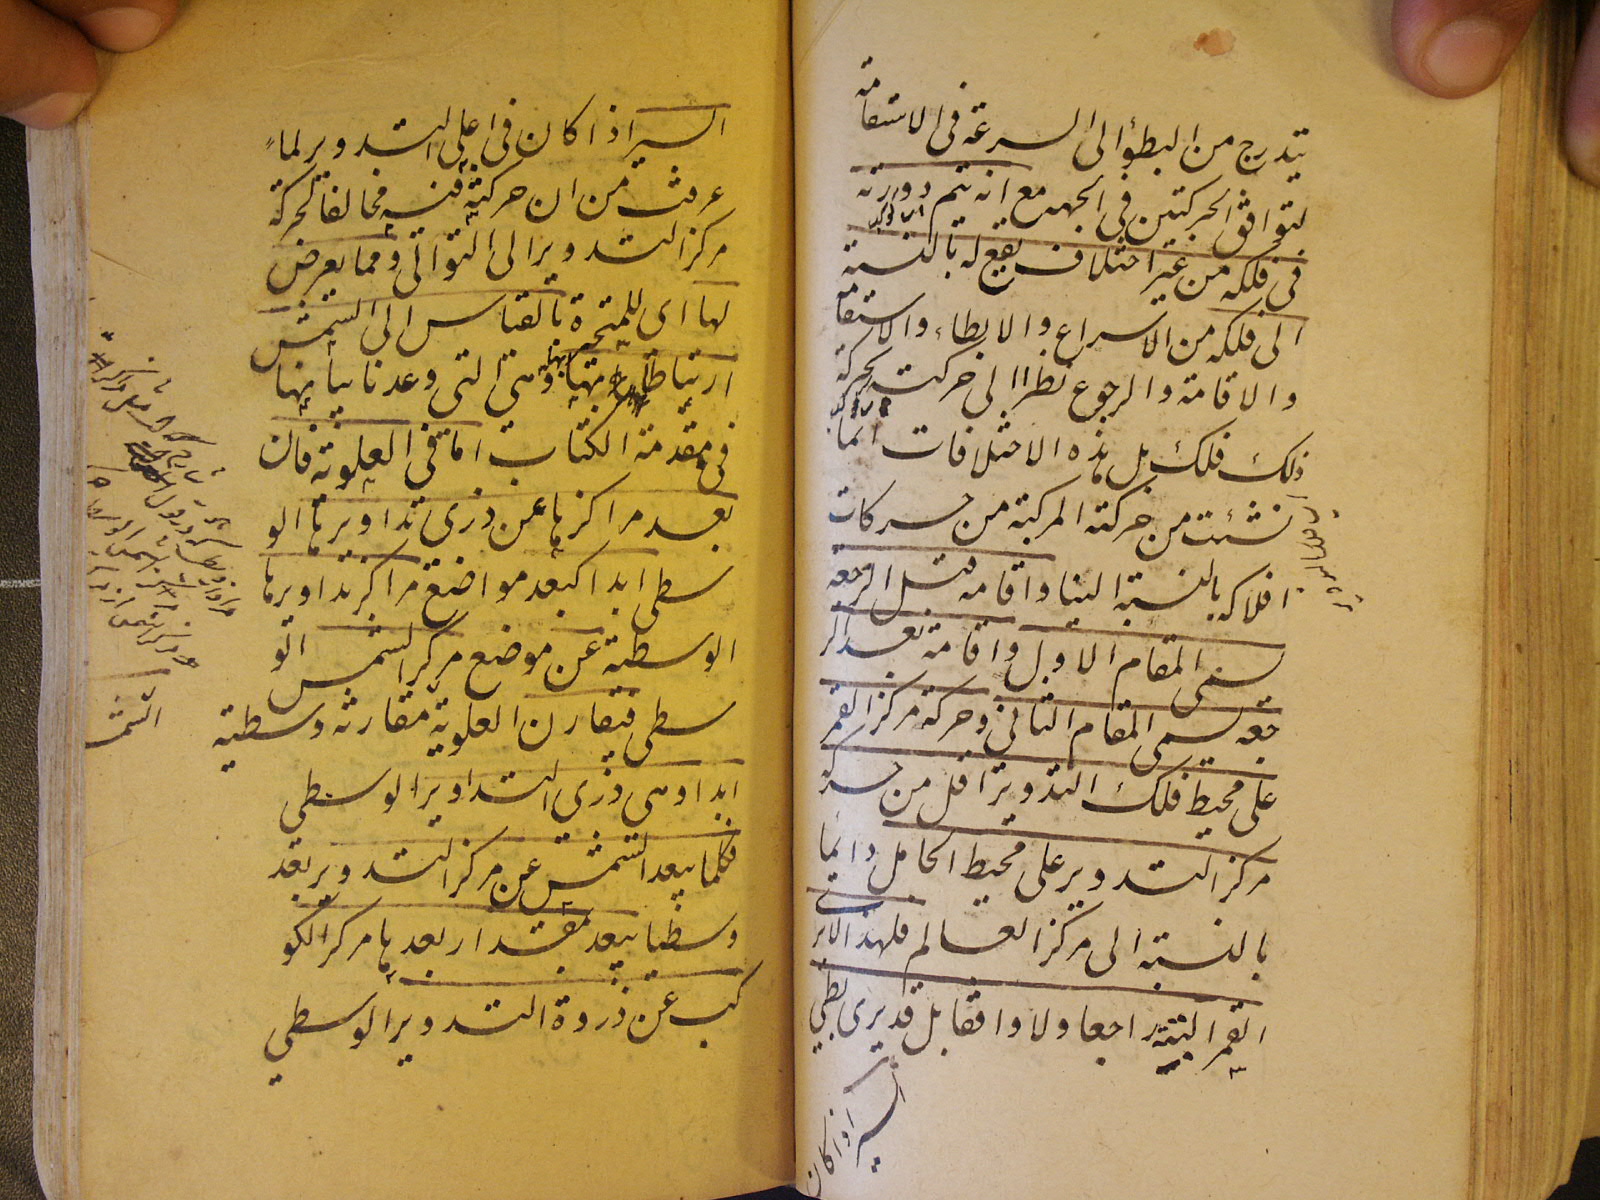 يتدرج من البطؤ الى السرعة فى الاستقامة
لتوافق الحركتين فى الجهة مع انه يتم دورته
فى فلكه من غير اختلاف يقع له بالنسبة
الى فلكه من الاسراع والابطاء والاستقامة
والاقامة والرجوع نظرا الى حركته بحركة
ذلك فلك بل هذه الاختلافات انما
نشئت من حركته المركبة من حركات
افلاكه بالنسبة الينا واقامه قبل الرجعة
يسمى المقام الاول واقامة بعد الر
جعة يسمى المقام الثانى وحركة مركز القمر
على محيط فلك التدوير اقل من حركة
مركز التدوير على محيط الحامل دائما
بالنسبة الى مركز العالم فلهذا لا يرى
القمر البتة راجعا ولا واقفا بل قد يرى بطئ
السير اذا كان
السير اذا كان فى اعلى التدوير لما
عرفت من ان حركته فيه مخالفة لحركة
مركز التدوير الى التوالى ومما يعرض
لها اى للمتحيرة بالقياس الى الشمس
ارتباطها بها وهى التى وعدنا بيانها
فى مقدمة الكتاب اما فى العلوية فان
بعد مراكزها عن ذرى تداويرها الو
سطى ابدا كبعد مواضع مراكز تداويرها
الوسطية عن موضع مركز الشمس الو
سطى فيقارن العلوية مقارنة وسطية
ابدا وهى ذرى التداوير الوسطى
فكلما يبعد الشمس عن مركز التدوير بعد
وسطيا يبعد بمقدار بعدها مركز الكو
كب عن ذروة التدوير الوسطى
الشمس